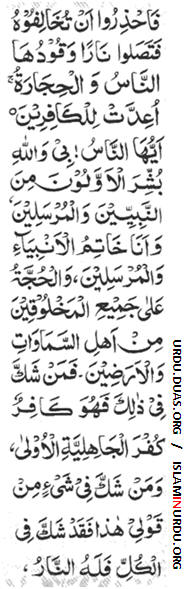 فَاحْذَرُوا اَنْ تُخَالِفُوْهُ
فَتَصْلَوا نَارًا وَقُوْدُهَا
النَّاسُ وَالْحِجَارَةُ
اُعِدَّتْ لِلْكَافِرِيْنَ
اَيُّهَا النَّاسُ! بِيْ وَاللهِ
بُشِّرَ الْاَوَّلُوْنَ مِنَ
النَّبِيِّيْنَ وَالْمُرْسَلِيْنَ،
وَاَنَا خَاتِمُ الْاَنْبِيَاءِ
وَالْمُرْسَلِيْنَ، وَالْحُجَّةُ
عَلٰى جَمِيْعِ الْمَخْلُوْقِيْنَ
مِنْ اَهْلِ السَّمَاوَاتِ
وَالْاَرَضِيْنَ۔ فَمَنْ شَكَّ
فِيْ ذٰلِكَ فَهُوَ كَافِرٌ
كُفْرَ الْجَاهِلِيَّةِ الْاُوْلٰى،
وَمَنْ شَكَّ فِيْ شَيْءٍ مِنْ
قَوْلِيْ هٰذَا فَقَدْ شَكَّ فِي
الْكُلِّ فَلَهُ النَّارُ،
URDU.DUAS.ORG / ISLAMINURDU.ORG